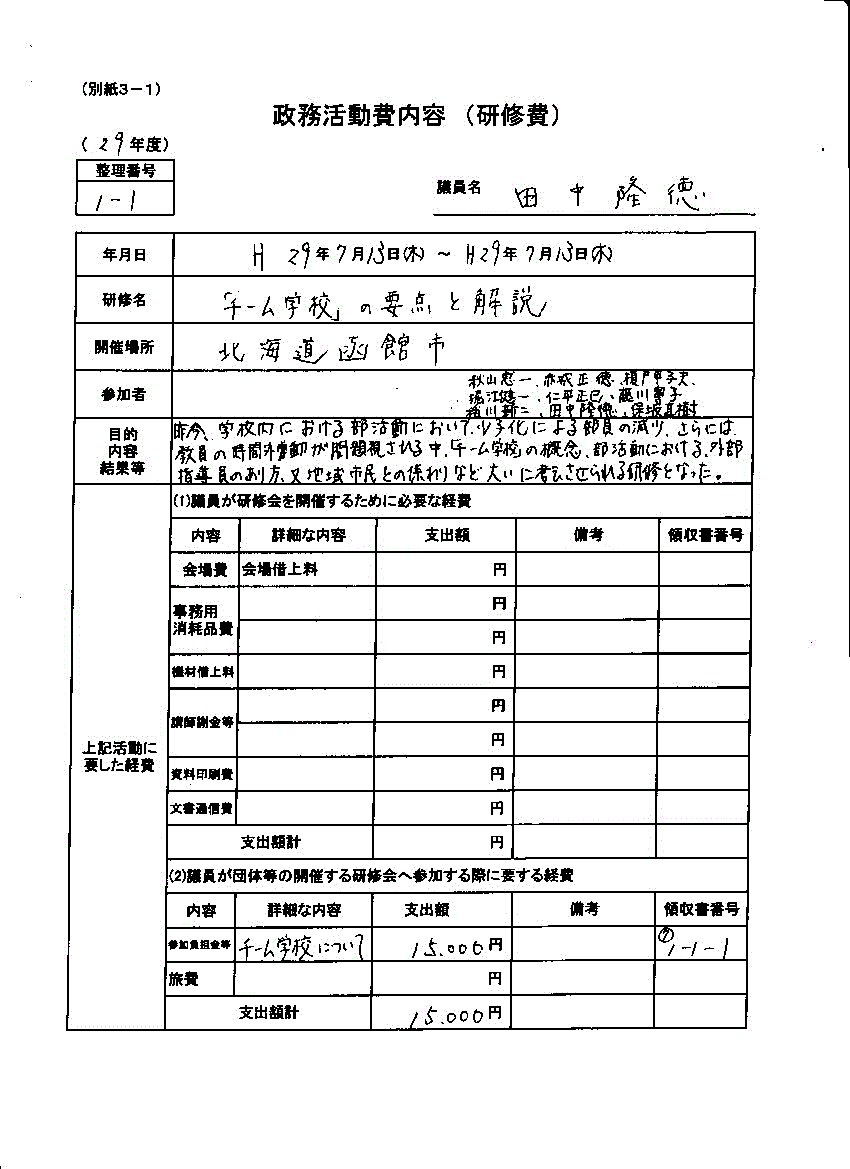 （別紙3－1）
政務活動費内容（研修費）
（29年度）
整理番号
1-1
議員名 田中隆徳
年月日 H 29年7月13日(木) ～ H29年7月13日(木)
研修名 「チーム学校」の要点と解説
開催場所 北海道函館市
参加者
秋山忠一、赤城正徳、
堀江健一、仁平正巳、藤川寧子
稲川新二、田中隆徳、保坂直樹
目的
内容
結果等
昨今、学校内における部活動において、少子化による部員の減少、さらには
教員の時間外労働が問題視される中、「チーム学校」の概念、部活動における、外部
指導員のあり方、又地域市民との係わりなど大いに考えさせられる研修となった。
上記活動に
要した経費
(1)議員が研修会を開催するために必要な経費
内容 詳細な内容 支出額 備考 領収書番号
会場費 会場借上料 円
事務用
消耗品費
円
円
機材借上料 円
講師謝金等
円
円
資料印刷費 円
文書通信費 円
支出額計 円
(2)議員が団体等の開催する研修会へ参加する際に要する経費
内容 詳細な内容 支出額 備考 領収書番号
参加負担金等 チーム学校について 15.000円 1-1-1
旅費 円
支出額計 15.000円